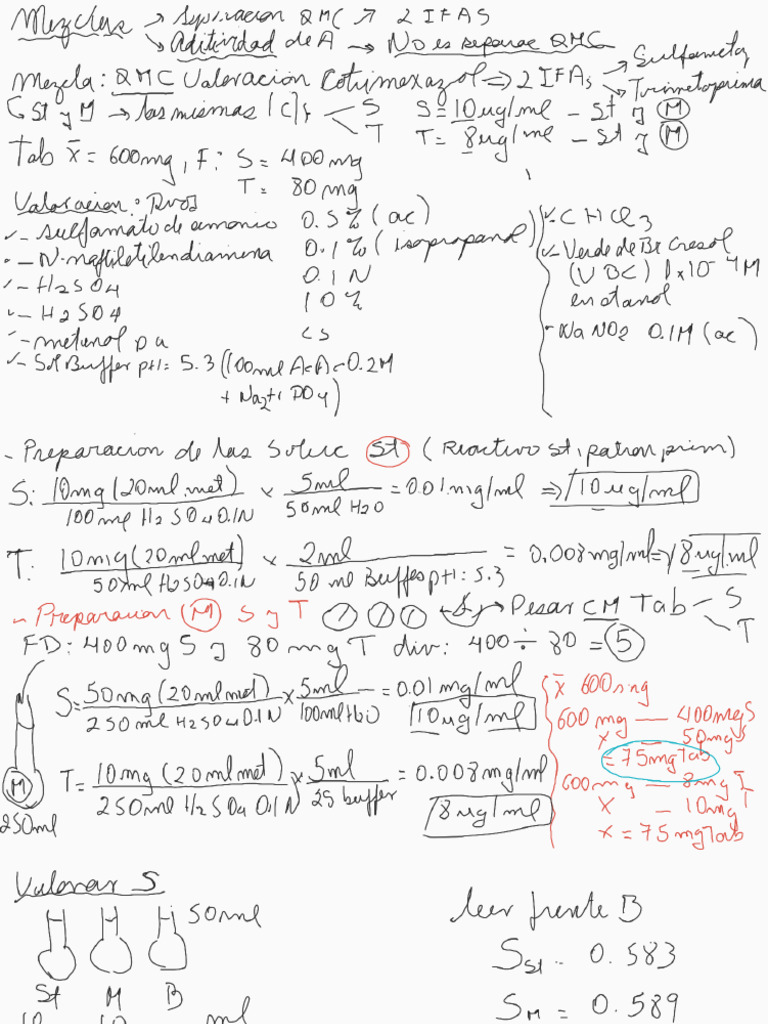 Mezclas → Separacion QMC → 2 IFAS
↳ Aditividad de A → No es separac QMC
Mezcla: QMC Valoracion Cotrimoxazol ⇒ 2 IFAs → Sulfametox
→ Trimetoprima
↳ St y M → las mismas [C]s < S
T
S = 10 ug/ml - St y M
T = 8 ug/ml - St y M
Tab x̄ = 600mg, F: S = 400 mg
T = 80 mg
Valoracion: Rvos
- sulfamato de amonio 0.5% (ac)
- N-naftiletilendiamina 0.1% (isopropanol)
- H2SO4 0.1 N
- H2SO4 10%
- metanol pa cs
- Sol Buffer pH = 5.3 (100ml AcAc 0.2M
+ Na2H PO4)
- CHCl3
- Verde de Br Cresol
(VBC) 1x10-4M
en etanol
- NaNO2 0.1M (ac)
- Preparacion de las Soluc St (Reactivo st, patron, prim)
S: 10mg (20ml met) / 100ml H2SO4 0.1N × 5ml / 50ml H2O = 0.01 mg/ml ⇒ 10 ug/ml
T: 10mg (20ml met) / 50ml H2SO4 0.1N × 2ml / 50 ml Buffer pH: 5.3 = 0.008 mg/ml ⇒ 8 ug/ml
- Preparacion M S y T → Pesar CM Tab < S
T
FD: 400mg S y 80 mg T div: 400 ÷ 80 = 5
S = 50mg (20ml met) / 250ml H2SO4 0.1N × 5ml / 100ml H2O = 0.01 mg/ml
10 ug/ml
T = 10mg (20ml met) / 250ml H2SO4 0.1N × 5ml / 25 buffer = 0.008 mg/ml
8 ug/ml
M
250ml
x̄ 600mg
600 mg — 400mg S
x — 50mg S
= 75mg Tab
600mg — 8mg T
x — 10mg T
x = 75 mg Tab
Valorar S
50ml
St M B
10 10 ml
leer frente B
Sst = 0.583
SM = 0.589